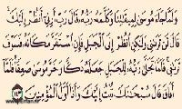 وَلَمَّا جَاءَ مُوسَىٰ لِمِيقَاتِنَا وَكَلَّمَهُ رَبُّهُ قَالَ رَبِّ أَرِنِي أَنْظُرْ إِلَيْكَ
قَالَ لَنْ تَرَانِي وَلَٰكِنِ انْظُرْ إِلَى الْجَبَلِ فَإِنِ اسْتَقَرَّ مَكَانَهُ فَسَوْفَ
تَرَانِي فَلَمَّا تَجَلَّىٰ رَبُّهُ لِلْجَبَلِ جَعَلَهُ دَكًّا وَخَرَّ مُوسَىٰ صَعِقًا فَلَمَّا
أَفَاقَ قَالَ سُبْحَانَكَ تُبْتُ إِلَيْكَ وَأَنَا أَوَّلُ الْمُؤْمِنِينَ